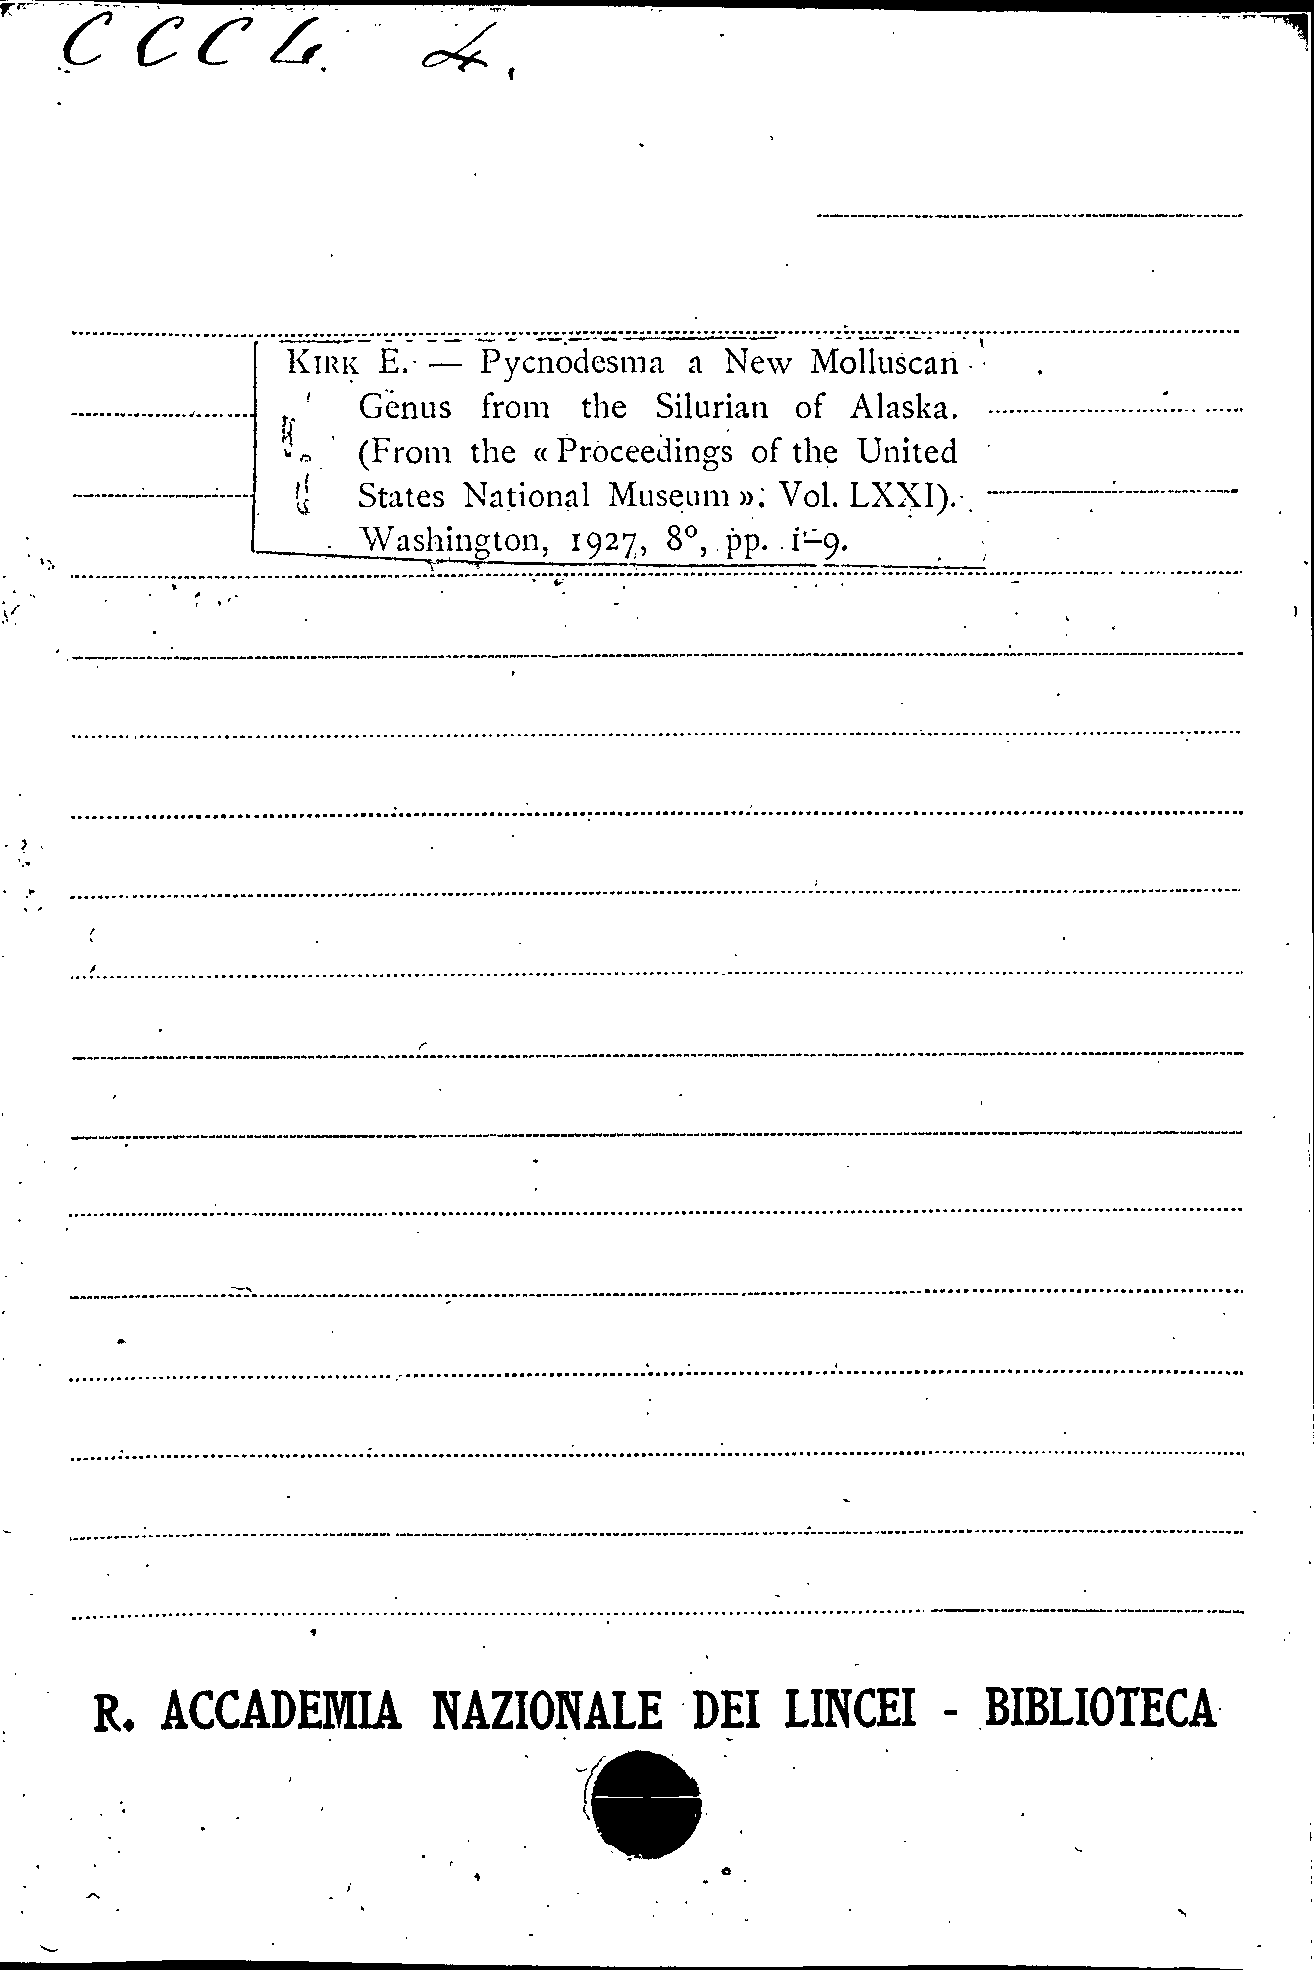 CCCL. 4.
KIRK E. — Pycnodesma a New Molluscan
Genus from the Silurian of Alaska.
(From the « Proceedings of the United
States National Museum ». Vol. LXXI).
Washington, 1927, 8º, pp. 1-9.
R. ACCADEMIA NAZIONALE DEI LINCEI - BIBLIOTECA